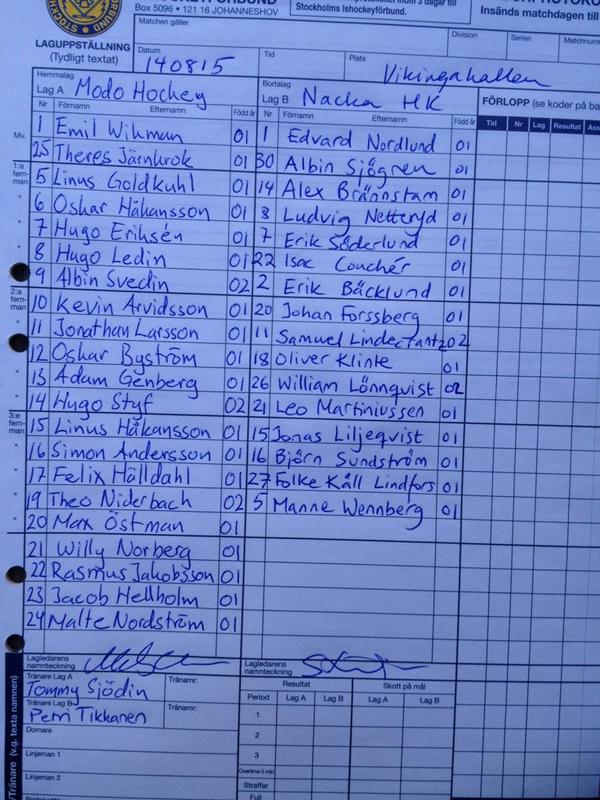 Box 5096 • 121 16 JOHANNESHOV
Stockholms Ishockeyförbund.
Insänds matchdagen till
LAGUPPSTÄLLNING
(Tydligt textat)
Matchen gäller
Division
Serien
Datum
140815
Tid
Plats
Vikingahallen
Hemmalag
Lag A Modo Hockey
Bortalag
Lag B Nacka HK
FÖRLOPP (se koder på ba
Nr Förnamn Efternamn Född år Nr Förnamn Efternamn Född år Tid Nr Lag Resultat Ass
Mv. 1 Emil Wikman 01 1 Edvard Nordlund 01
25 Theres Järnkrok 01 30 Albin Sjögren 01
1:a fem-man 5 Linus Goldkuhl 01 14 Alex Brännstam 01
6 Oskar Håkansson 01 8 Ludvig Netteryd 01
7 Hugo Eriksén 01 7 Erik Söderlund 01
8 Hugo Ledin 01 22 Isac Couchér 01
9 Albin Svedin 02 2 Erik Bäcklund 01
2:a fem-man 10 Kevin Arvidsson 01 20 Johan Forssberg 01
11 Jonathan Larsson 01 11 Samuel 02
12 Oskar Byström 01 18 Oliver Klinte 01
13 Adam Genberg 01 26 William Lönnqvist 02
14 Hugo Styf 02 21 Leo Martiniussen 01
3:e fem-man 15 Linus Håkansson 01 15 Jonas Liljeqvist 01
16 Simon Andersson 01 16 Björn Sundström 01
17 Felix Hälldahl 01 27 Folke Käll Lindfors 01
19 Theo Niderbach 02 5 Manne Wennberg 01
20 Max Östman 01
21 Willy Norberg 01
22 Rasmus Jakobsson 01
23 Jacob Hellholm 01
24 Malte Nordström 01
Lagledarens namnteckning
Lagledarens namnteckning
Tränare Lag A Tränarnr:
Tommy Sjödin
Tränare Lag B Tränarnr:
Petri Tikkanen
Domare
Linjeman 1
Linjeman 2
/Tränare (v.g. texta namnen)
Resultat Skott på mål
Period Lag A Lag B Lag A Lag B
1
2
3
Overtime 5 min
Straffar
Full